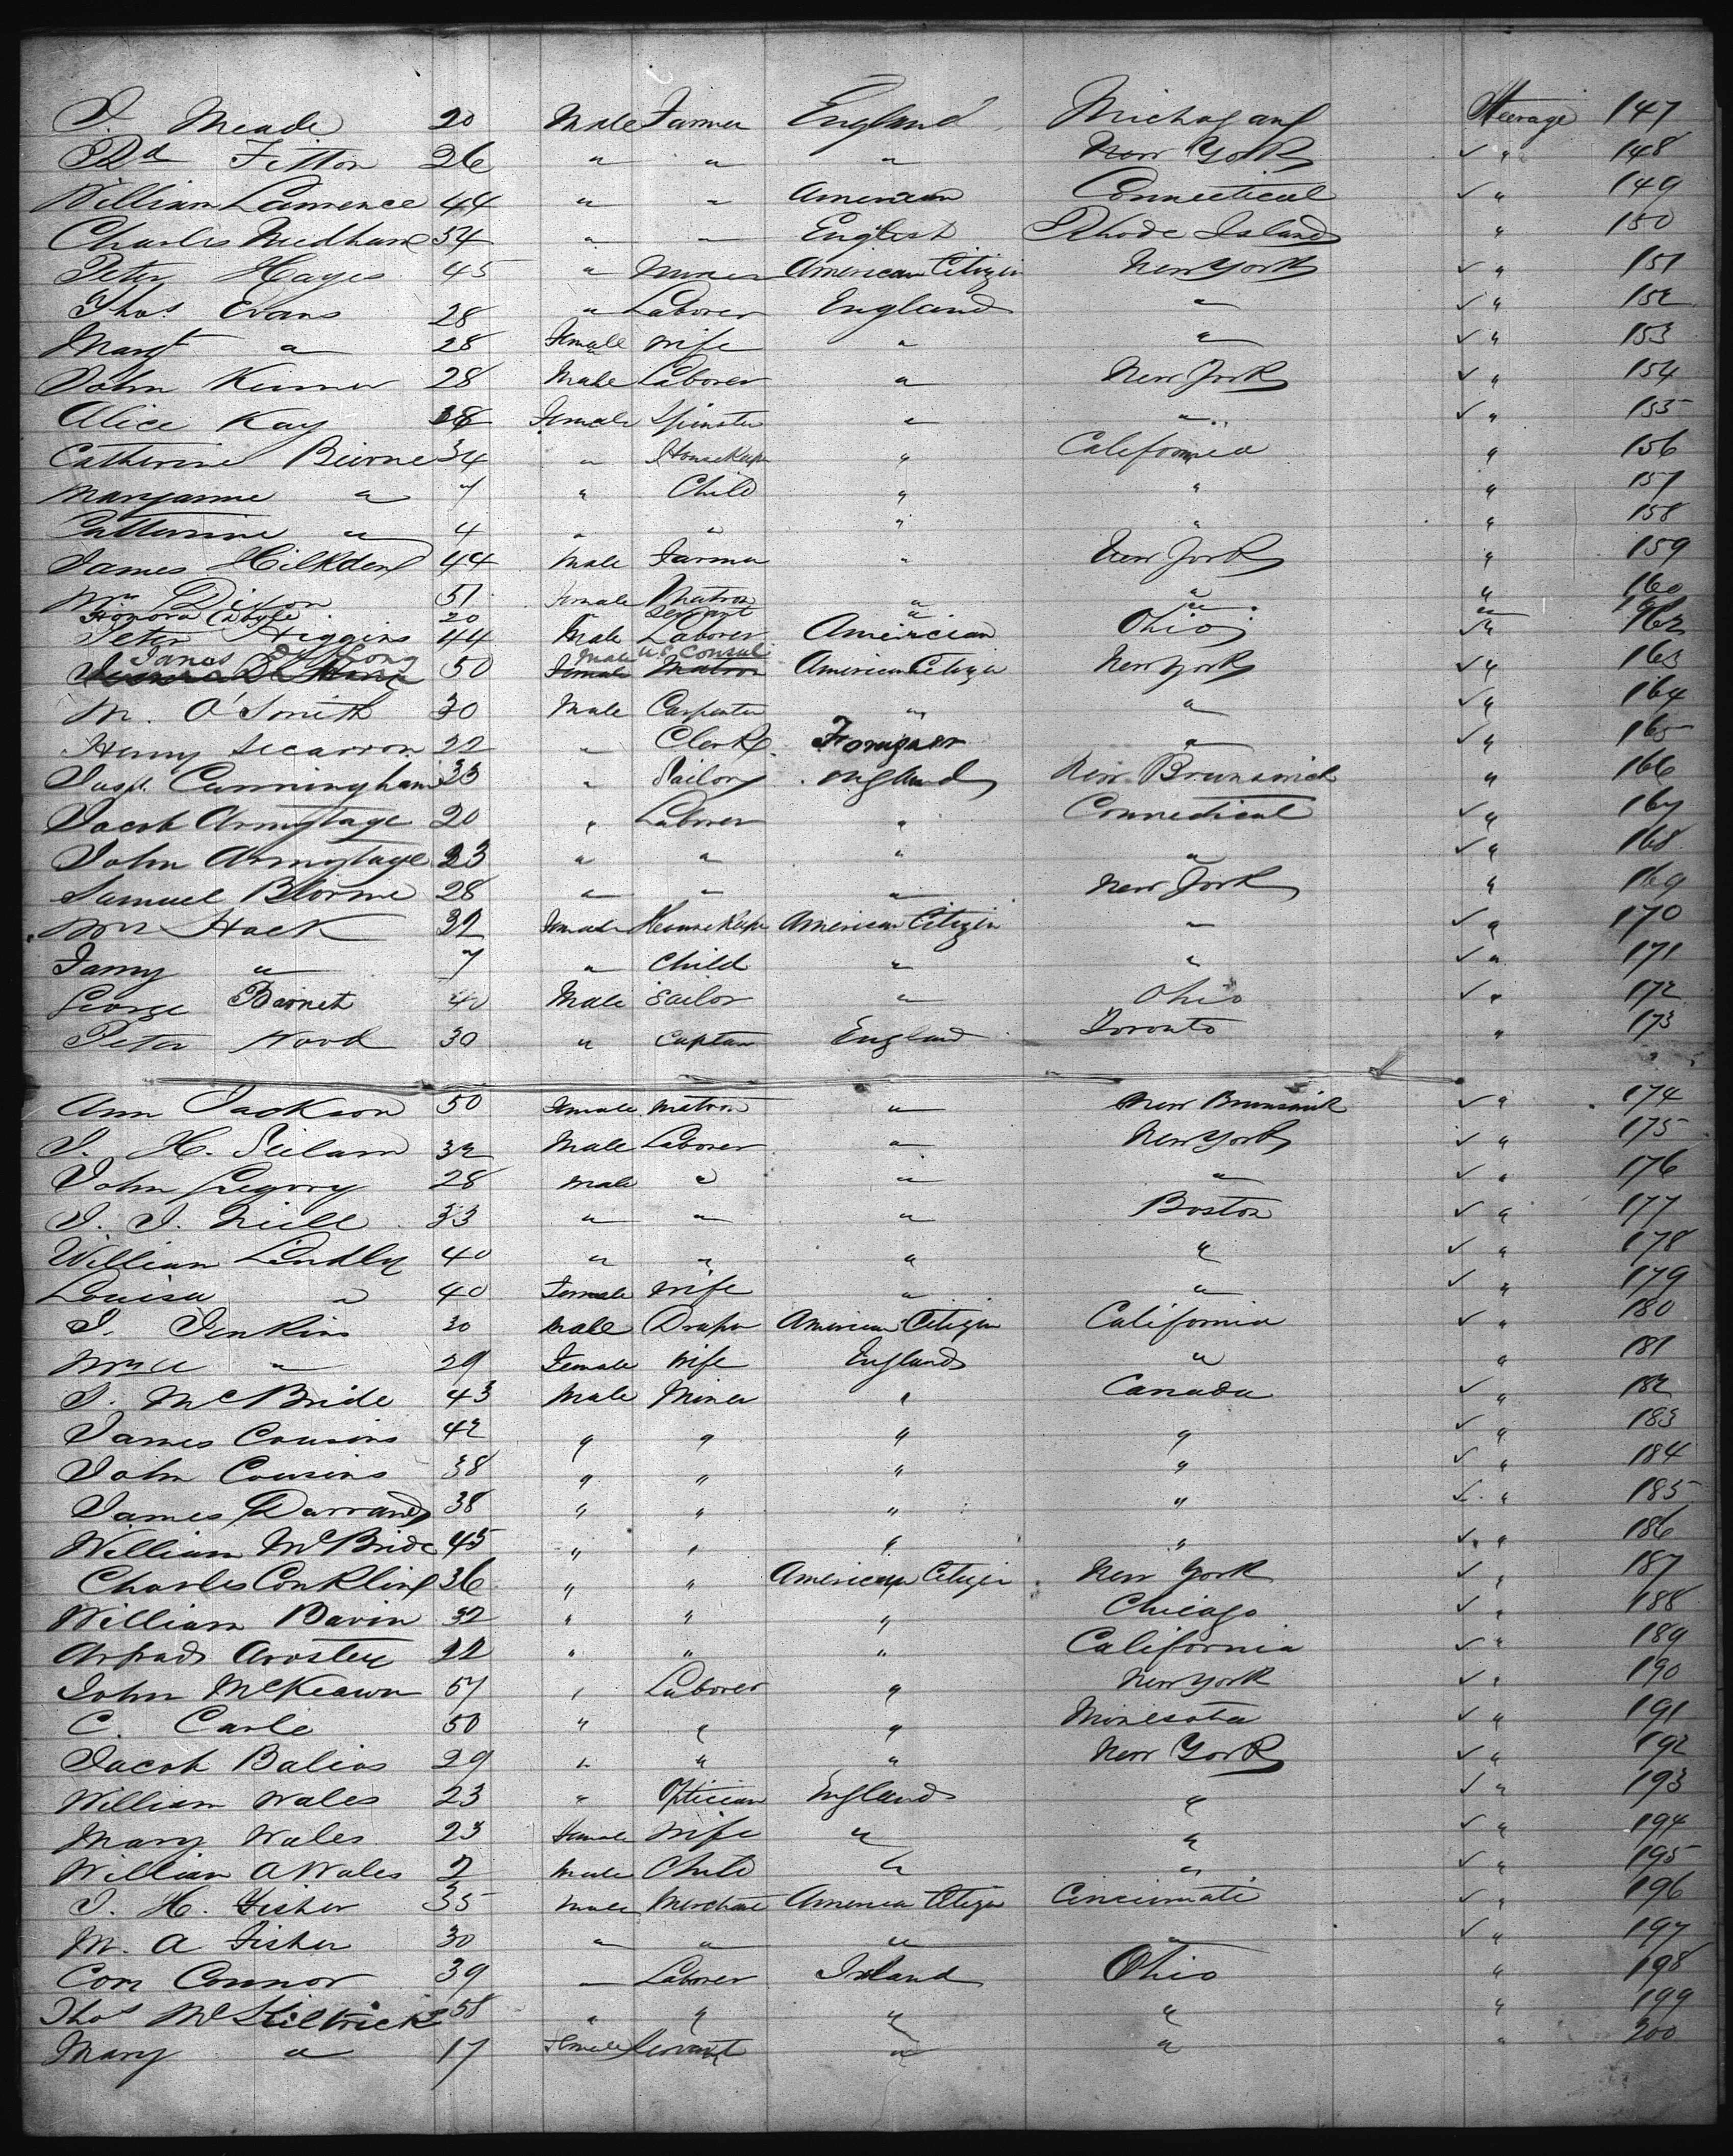 J. Meade 20 Male Farmer England Michagan Steerage 147
Rd Fitton 26 " " " New York ✓ " 148
William Lawrence 44 " " American Connecticut ✓ " 149
Charles Needham 54 " " English Rhode Island " 150
Peter Hayes 45 " Miner American Citizen New York ✓ " 151
Thos Evans 28 " Laborer England " ✓ " 152
Margt " 28 Female Wife " " ✓ " 153
John 28 Male Laborer " New York ✓ " 154
Alice Kay 38 Female Spinster " " ✓ " 155
Catherine Beirne 34 " Housekeeper " California " 156
Maryanne " 7 " Child " " " 157
Catherine " 4 " " " " " 158
James Hilkden 44 Male Farmer " New York " 159
Mrs Dixon 51 Female Matron " " " 160
Honora Doyle 20 " Servant " " " 161
Peter Higgins 44 Male Laborer American Ohio ✓ " 162
James De Long 50 Male U.S. Consul American Citizen New York ✓ " 163
M. O'Smith 30 Male Carpenter " " ✓ " 164
Henry Secarron 22 " Clerk Foreigner " ✓ " 165
Josph Cunningham 23 " Sailor England New Brunswick " 166
Jacob Armytage 20 " Laborer " Connecticut ✓ " 167
John Armytage 23 " " " " ✓ " 168
Samuel Blorme 28 " " " New York " 169
Mrs Hack 32 Female Housekeeper American Citizen " ✓ " 170
Fanny " 7 " Child " " ✓ " 171
George Barnet 40 Male Sailor " Ohio ✓ " 172
Peter Wood 30 " Captan England Toronto " 173
Ann Jackson 50 Female Matron " New Brunswick ✓ " 174
J. H. Seilam 32 Male Laborer " New York ✓ " 175
John Gregory 28 Male " " " ✓ " 176
J. J. Neill 33 " " " Boston ✓ " 177
William Lindley 40 " " " " ✓ " 178
Louisa " 40 Female Wife " " ✓ " 179
J. Jenkins 30 Male Draper American Citizen California ✓ " 180
" 29 Female Wife England " " 181
J. McBride 43 Male Miner " Canada ✓ " 182
James Cousins 42 " " " " ✓ " 183
John Cousins 38 " " " " ✓ " 184
James Darrand 38 " " " " ✓ " 185
William McBride 45 " " " " ✓ " 186
Charles Conkling 36 " " American Citizen New York ✓ " 187
William Bavin 32 " " " Chicago ✓ " 188
Arpad Arostey 22 " " " California ✓ " 189
John McKeawn 57 " Laborer " New York ✓ " 190
C. Carle 50 " " " Minesota ✓ " 191
Jacob Balias 29 " " " New York ✓ " 192
William Wales 23 " Optician England " ✓ " 193
Mary Wales 23 Female Wife " " ✓ " 194
William A Wales 2 Male Child " " ✓ " 195
J. H. Fisher 35 Male Merchant American Citizen Cincinnati ✓ " 196
M. A Fisher 30 " " " " ✓ " 197
Corn Connor 39 " Laborer Ireland Ohio " 198
Thos McKilwick 58 " " " " " 199
Mary " 17 Female Servant " " " 200